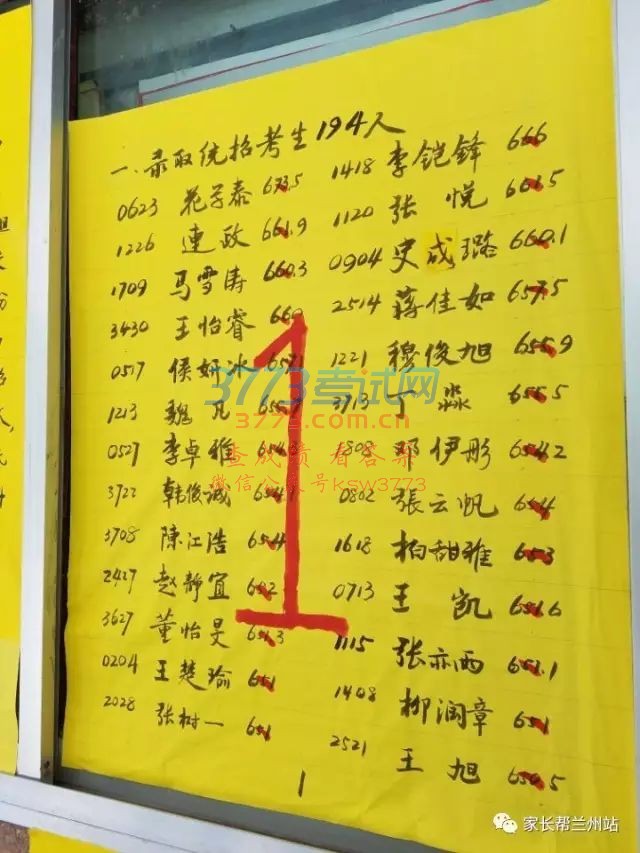 一. 录取统招考生194人
0623 花子泰 673.5 1418 李铠锋 666
1226 連政 661.9 1120 张悦 661.5
1709 马雪涛 660.3 0904 史成璐 660.1
3430 王怡睿 660 2514 蒋佳如 657.5
0517 侯妍冰 657.1 1221 穆俊旭 655.9
1213 魏凡 655.7 3713 丁淼 655.5
0527 李卓雅 654.3 1808 邓伊彤 654.2
3722 韩俊诚 654.1 0802 張云帆 654
3708 陳江浩 654 1618 柏甜雅 653
2427 赵静宜 652 0713 王凯 651.6
3627 董怡旻 651.3 1115 张亦西 651.1
0204 王楚瑜 651 1408 柳润章 651
2028 张树一 651 2521 王旭 650.5
1
1
3773考试网
www.3773.com.cn
查成绩 看答案
微信公众号ksw3773
家长帮兰州站